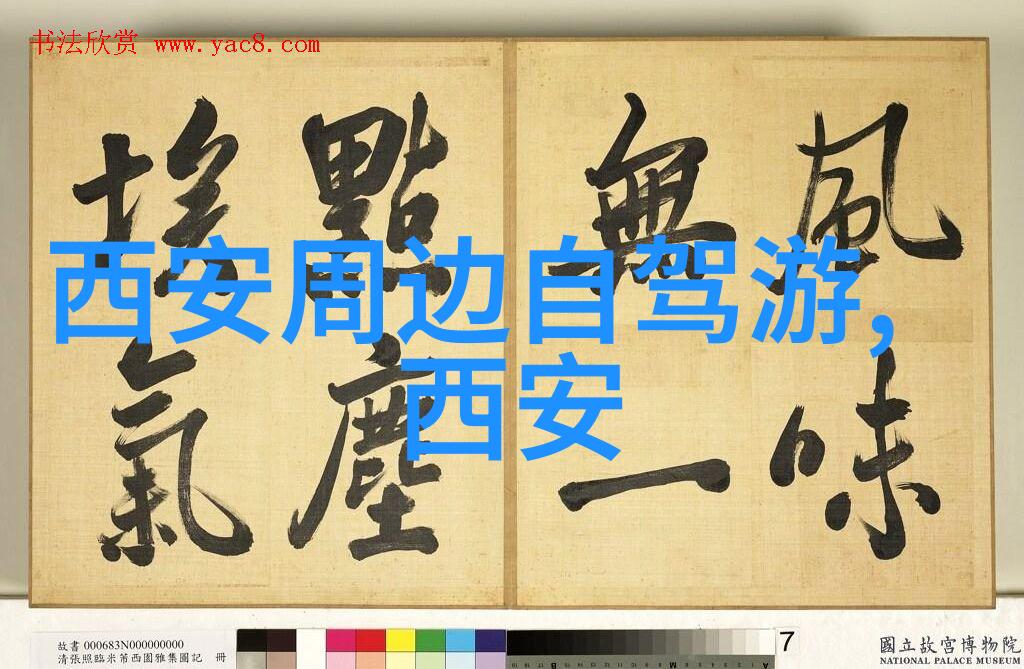 书法欣赏 www.yac8.com
風味
無一
點塵
埃氣
西安周边自驾游,
西安
故書 000683N000000000
清張照臨米芾西園雅集圖記 冊
7
國立故宮博物院
NATIONAL PALACE MUSEUM